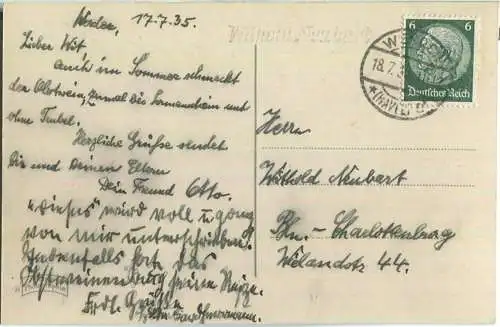 Werder, 17.7.35.
Lieber Wit,
auch im Sommer schmeckt
der Obstwein, zumal bei Sonnenschein und
ohne Trubel.
Herzliche Grüsse sendet
Dir und Deinen Eltern
Dein Freund Otto.
"dieses" wird voll u ganz
von mir unterschrieben.
Jedenfalls hat das
seine Reize.
Frdl. Grüße
18.7.3
(HAVEL)
6
Deutsches Reich
Herrn
Withold Neubart
Bln.-Charlottenburg
Wielandstr. 44.